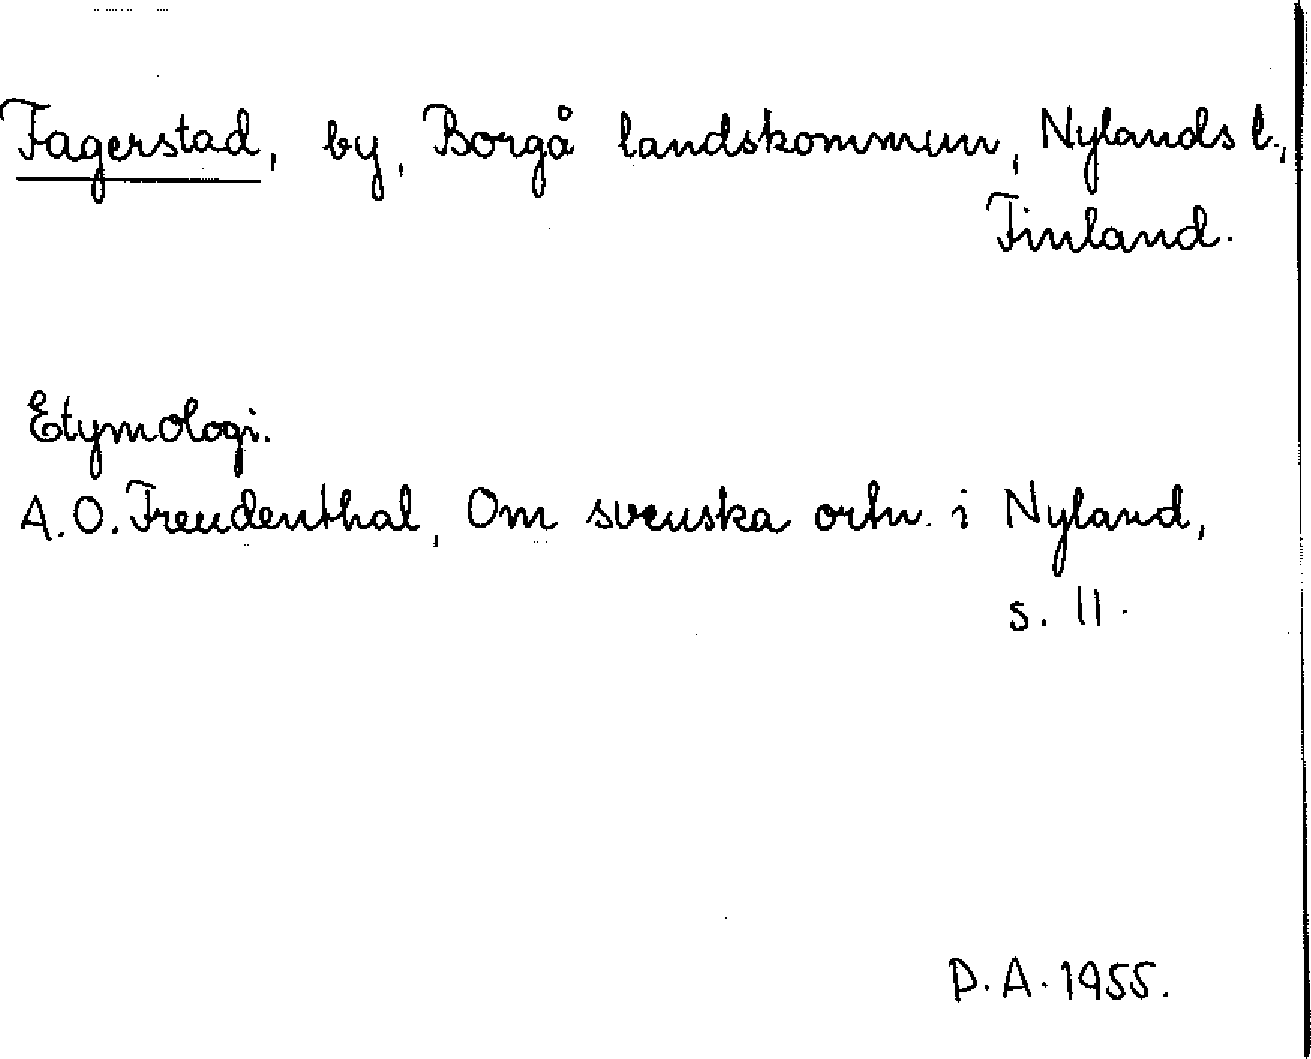 Fagerstad, by, Borgå landskommun, Nylands l.,
Finland.
Etymologi.
A.O. Freudenthal, Om svenska ortn. i Nyland,
s. 11.
P.A. 1955.